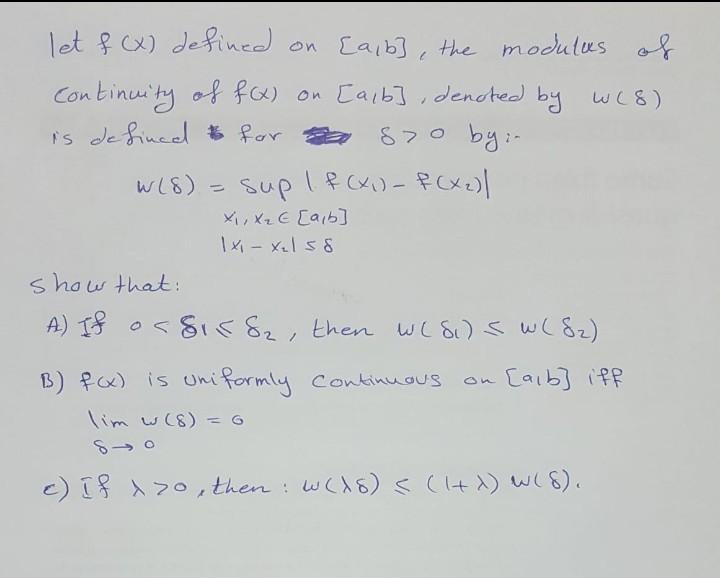 let f(x) defined on [a,b], the modulus of
continuity of f(x) on [a,b], denoted by w(δ)
is defined for δ>0 by:-
w(δ) = sup | f(x₁) - f(x₂)|
x₁, x₂ ∈ [a,b]
|x₁ - x₂| ≤ δ
show that:
A) If 0 < δ₁ ≤ δ₂, then w(δ₁) ≤ w(δ₂)
B) f(x) is uniformly continuous on [a,b] iff
lim w(δ) = 0
δ → 0
c) If λ>0, then: w(λδ) ≤ (1+λ) w(δ).